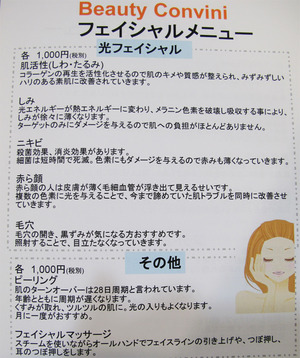 Beauty Convini
フェイシャルメニュー
光フェイシャル
各 1,000円(税別)
肌活性(しわ・たるみ)
コラーゲンの再生を活性化させるので肌のキメや質感が整えられ、みずみずしい
ハリのある素肌に改善されていきます。
しみ
光エネルギーが熱エネルギーに変わり、メラニン色素を破壊し吸収する事により、
しみが徐々に薄くなります。
ターゲットのみにダメージを与えるので肌への負担がほとんどありません。
ニキビ
殺菌効果、消炎効果があります。
細菌は短時間で死滅。色素にもダメージを与えるので赤みも薄くなっていきます。
赤ら顔
赤ら顔の人は皮膚が薄く毛細血管が浮き出て見えるせいです。
複数の色素に光を与えることで、今まで諦めていた肌トラブルを同時に改善させ
ていきます。
毛穴
毛穴の開き、黒ずみが気になる方おすすめです。
照射することで、目立たなくなっていきます。
その他
各 1,000円(税別)
ピーリング
肌のターンオーバーは28日周期と言われています。
年齢とともに周期が遅くなります。
くすみが取れ、ツルツルの肌に。光の入りもよくなります。
月に一度がおすすめ。
フェイシャルマッサージ
スチームを使いながらオールハンドでフェイスラインの引き上げや、つぼ押し、
耳のつぼ押しをします。